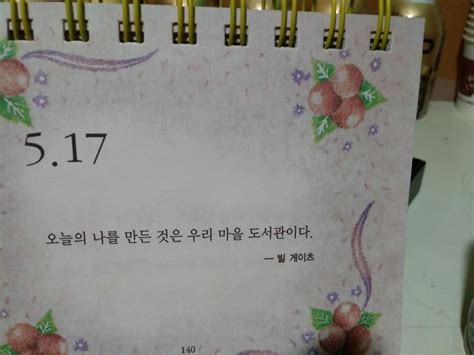 5.17
오늘의 나를 만든 것은 우리 마을 도서관이다.
— 빌 게이츠
140